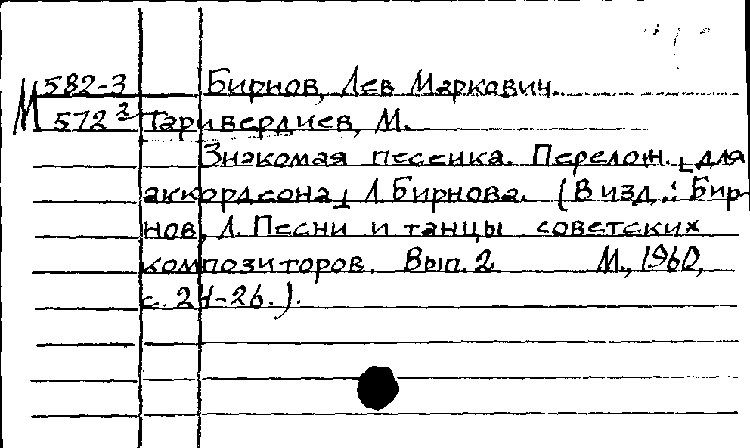 М 582-3 Бирнов, Лев Маркович.
572² Таривердиев, М.
Знакомая песенка. Перелож. [для
аккордеона] Л. Бирнова. (В изд.: Бир-
нов, Л. Песни и танцы советских
композиторов. Вып. 2 М., 1960,
с. 24-26.).